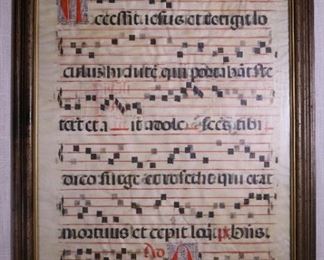 Accessit iesus et tetigit lo
hi autē qui portabāt ste
et a it adole scēs tibi
dico surge et resedit qui erat
mortuus et cepit loqui.